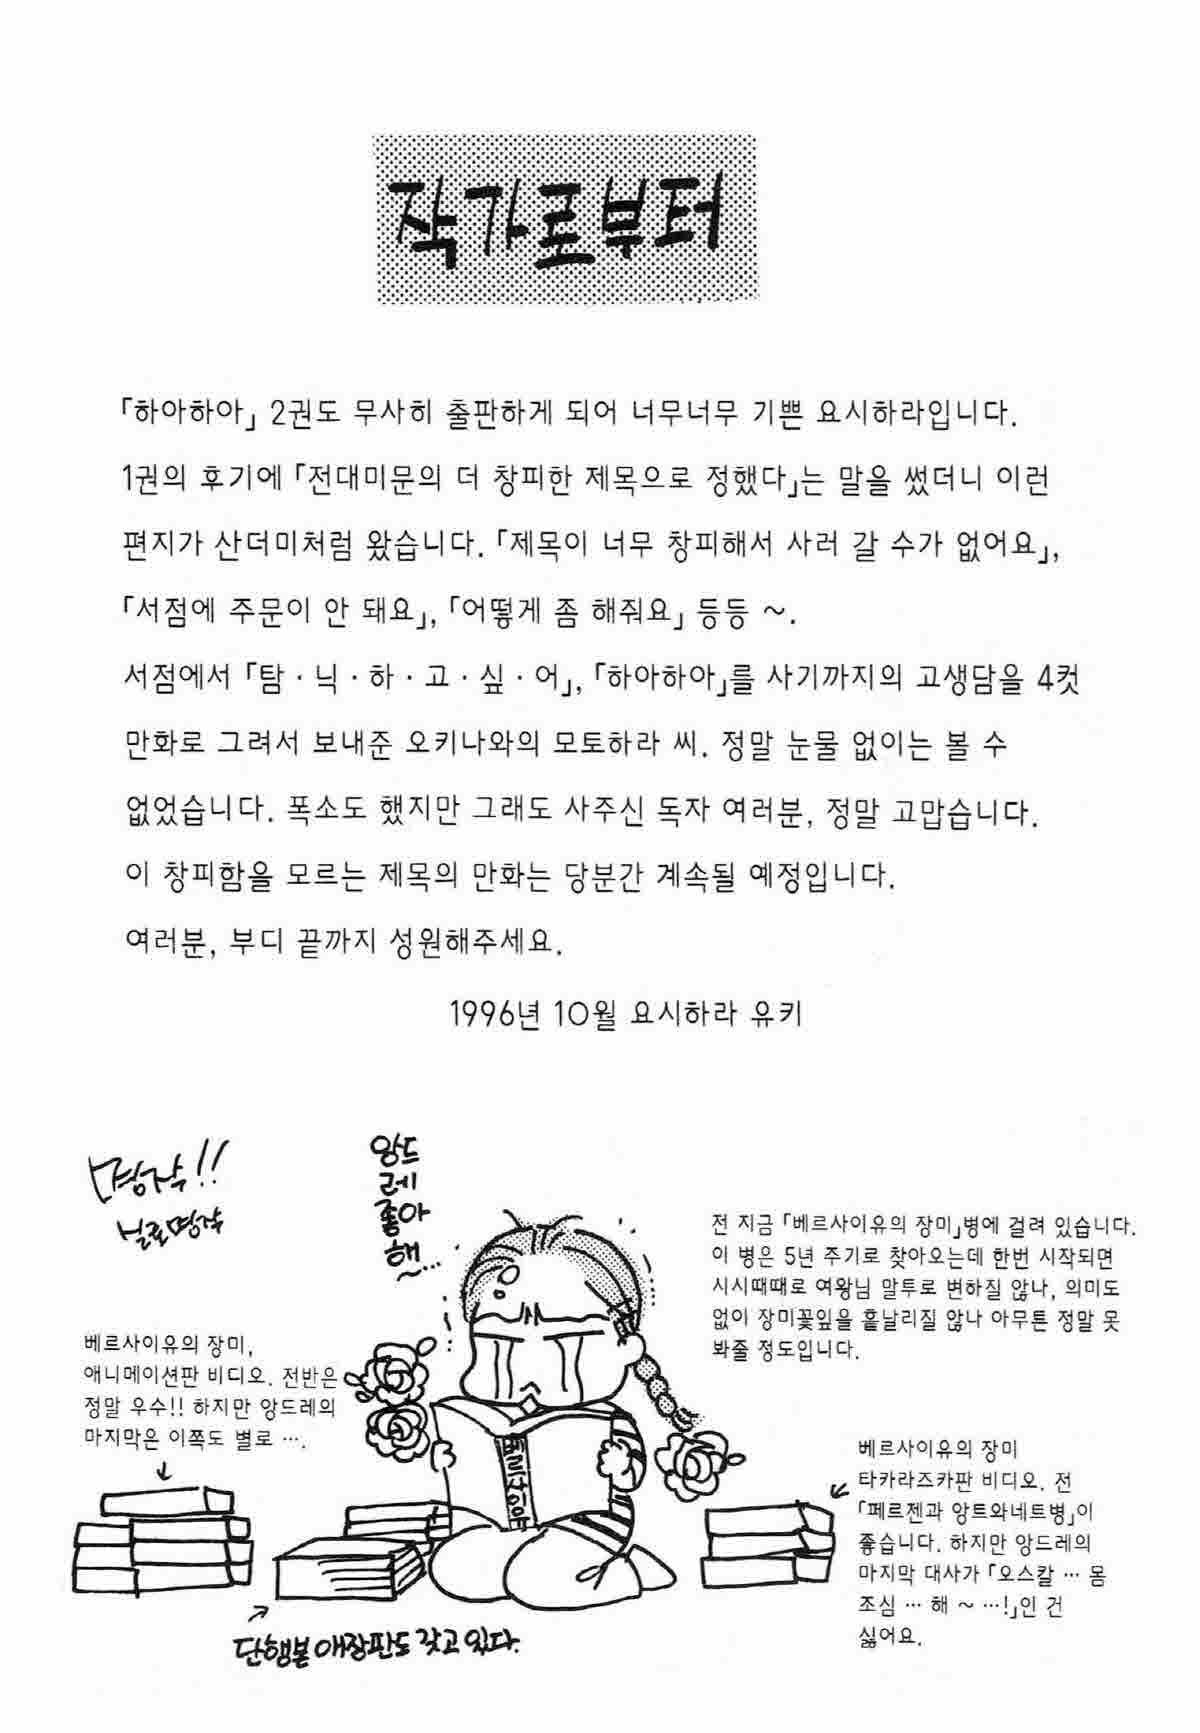 작가로부터
「하아하아」 2권도 무사히 출판하게 되어 너무너무 기쁜 요시하라입니다.
1권의 후기에 「전대미문의 더 창피한 제목으로 정했다」는 말을 썼더니 이런
편지가 산더미처럼 왔습니다. 「제목이 너무 창피해서 사러 갈 수가 없어요」,
「서점에 주문이 안 돼요」, 「어떻게 좀 해줘요」 등등 ~.
서점에서 「탐·닉·하·고·싶·어」, 「하아하아」를 사기까지의 고생담을 4컷
만화로 그려서 보내준 오키나와의 모토하라 씨. 정말 눈물 없이는 볼 수
없었습니다. 폭소도 했지만 그래도 사주신 독자 여러분, 정말 고맙습니다.
이 창피함을 모르는 제목의 만화는 당분간 계속될 예정입니다.
여러분, 부디 끝까지 성원해주세요.
1996년 10월 요시하라 유키
명작!!
명작
앙드
레
좋아
해~...
전 지금 「베르사이유의 장미」병에 걸려 있습니다.
이 병은 5년 주기로 찾아오는데 한번 시작되면
시시때때로 여왕님 말투로 변하질 않나, 의미도
없이 장미꽃잎을 흩날리질 않나 아무튼 정말 못
봐줄 정도입니다.
베르사이유의 장미,
애니메이션판 비디오. 전반은
정말 우수!! 하지만 앙드레의
마지막은 이쪽도 별로 ….
베르사이유의 장미
타카라즈카판 비디오. 전
「페르젠과 앙트와네트병」이
좋습니다. 하지만 앙드레의
마지막 대사가 「오스칼 … 몸
조심 … 해 ~ …!」인 건
싫어요.
단행본 애장판도 갖고 있다.